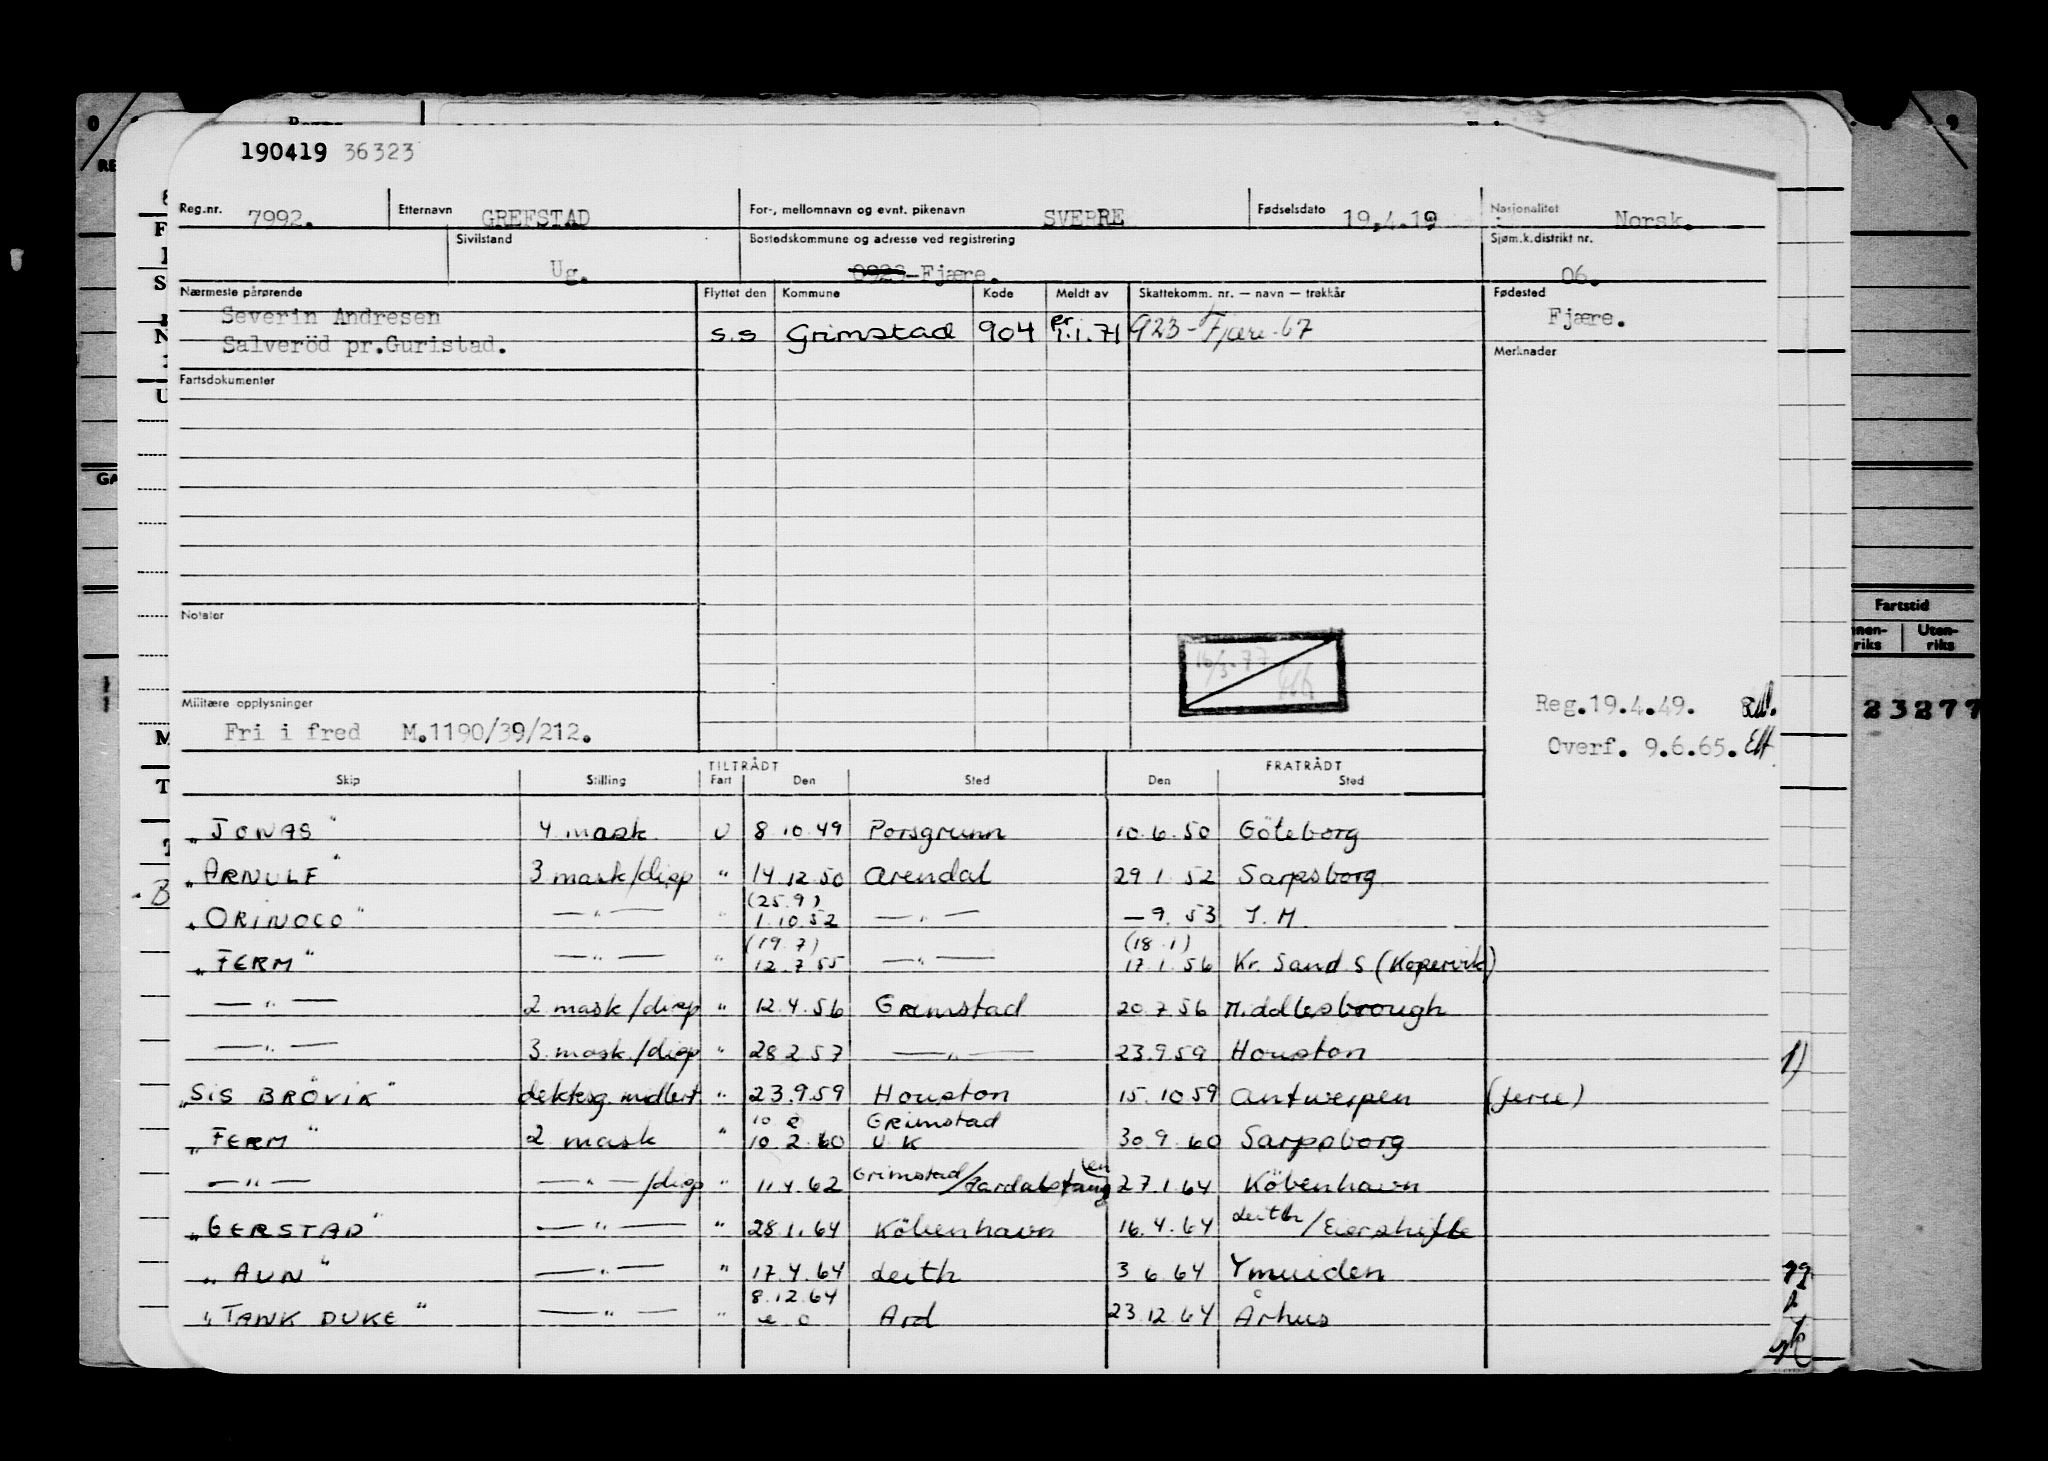 190419 36323
Reg.nr. 7992. Etternavn GREFSTAD For-, mellomnavn og evnt. pikenavn SVERRE Fødselsdato 19.4.19 Nasjonalitet Norsk.
Sivilstand Ug. Bostedskommune og adresse ved registrering 0923-Fjære. Sjøm.k.distrikt nr. 06.
Nærmeste pårørende Flyttet den Kommune Kode Meldt av Skattekomm. nr. — navn — trekkår Fødested
Severin Andresen Fjære.
Salveröd pr.Guristad. S.S Grimstad 904 pr 1.1.71 923-Fjære-67
Merknader
Fartsdokumenter
Notater
16/3.77
Militære opplysninger Reg.19.4.49.
Fri i fred M.1190/39/212. Overf. 9.6.65.
TILTRÅDT FRATRÅDT
Skip Stilling Fart Den Sted Den Sted
"JONAS" 4 mask. U 8.10.49 Porsgrunn 10.6.50 Göteborg
"ARNULF" 3 mask/disp " 14.12.50 Arendal 29.1.52 Sarpsborg
(25.9)
"ORINOCO" —"— " 1.10.52 —"— —9.53 I.M
(19.7) (18.1)
"FERM" —"— " 12.7.55 —"— 17.1.56 Kr. Sand S (Kopervik)
—"— 2 mask/disp " 12.4.56 Grimstad 20.7.56 Middlesbrough
—"— 3. mask./disp " 28.2.57 —"— 23.9.59 Houston
"SIS BRÖVIK" dekksg. midlert. " 23.9.59 Houston 15.10.59 Antwerpen (ferie)
10 2 Grimstad
"FERM" 2 mask " 10.2.60 U.K 30.9.60 Sarpsborg
—"— —"—/disp " 11.4.62 Grimstad/Aardalstangen 27.1.64 Köbenhavn
"GERSTAD" —"— " 28.1.64 Köbenhavn 16.4.64 Leith/Eierskifte
"AUN" —"— " 17.4.64 Leith 3.6.64 Ymuiden
8.12.64
"TANK DUKE" —"— " e.o Ard 23.12.64 Århus
Fartstid
Uten-
riks riks
23277